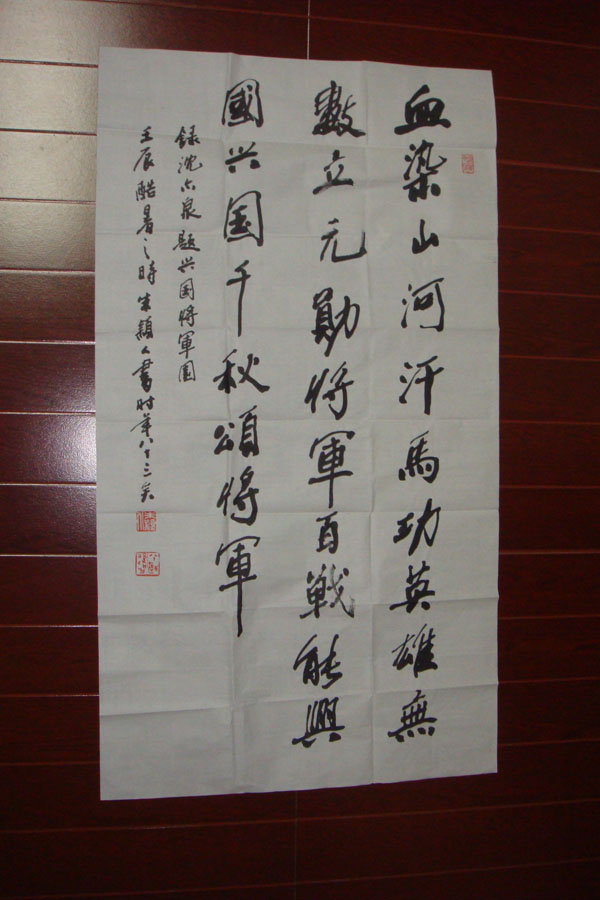 血染山河汗馬功英雄無
數立元勛将軍百戰能興
國兴国千秋頌将軍
録沈六泉题兴国将軍園
壬辰酷暑之時朱穎人書时年八十三矣